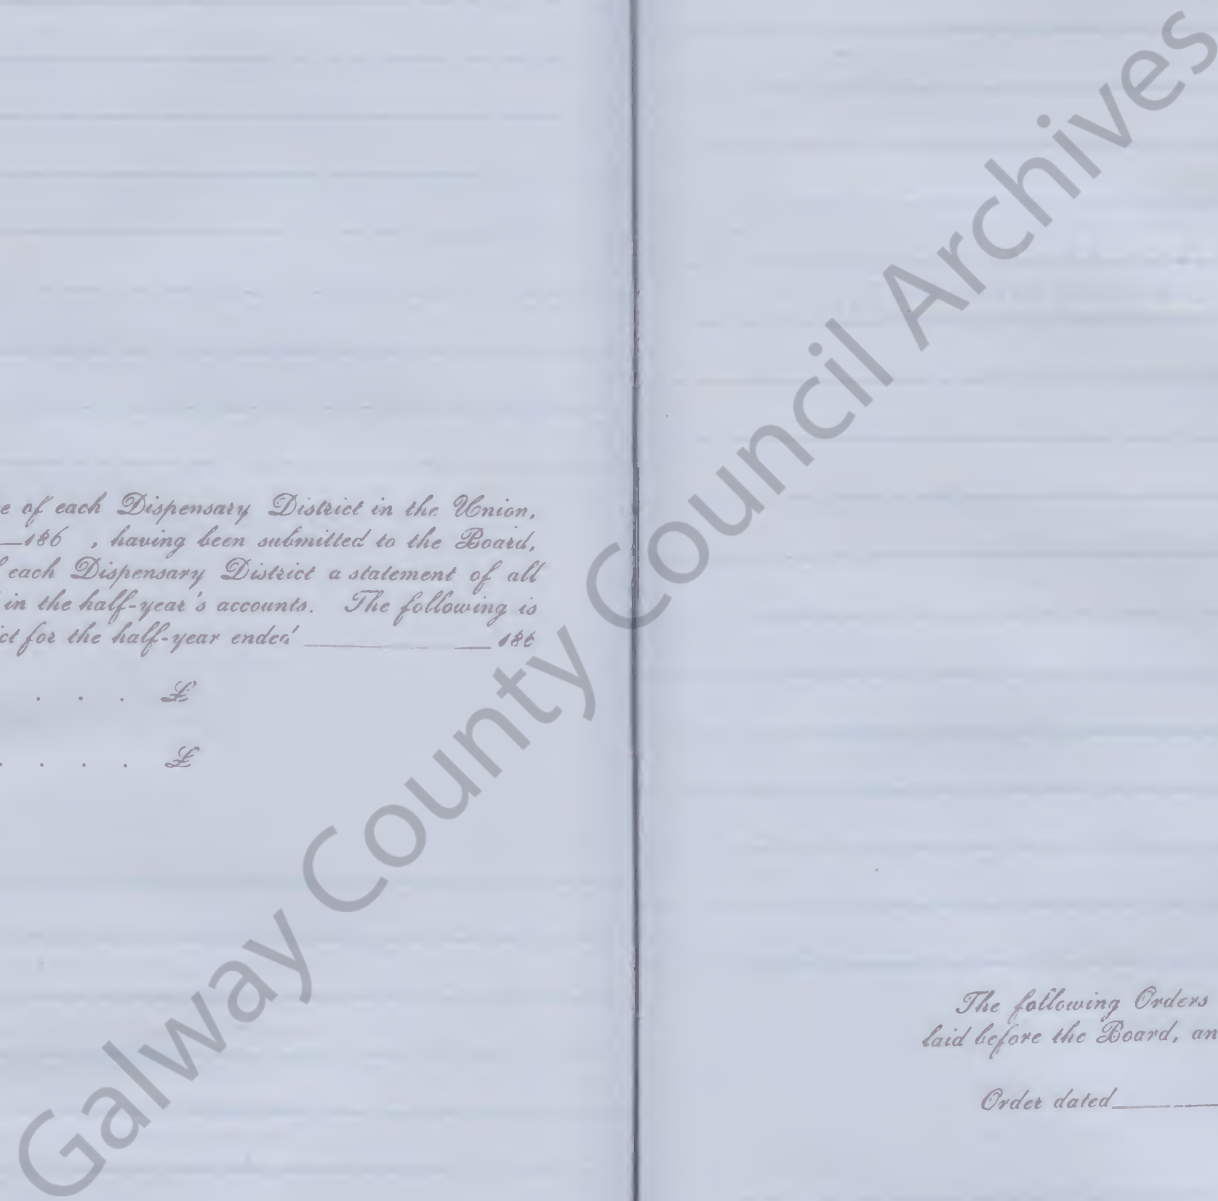 e of each Dispensary District in the Union,
186 , having been submitted to the Board,
each Dispensary District a statement of all
in the half-year's accounts. The following is
ct for the half-year ended 186
. . . £
. . . . £
The following Orders
laid before the Board, an
Order dated
Galway County Council Archives